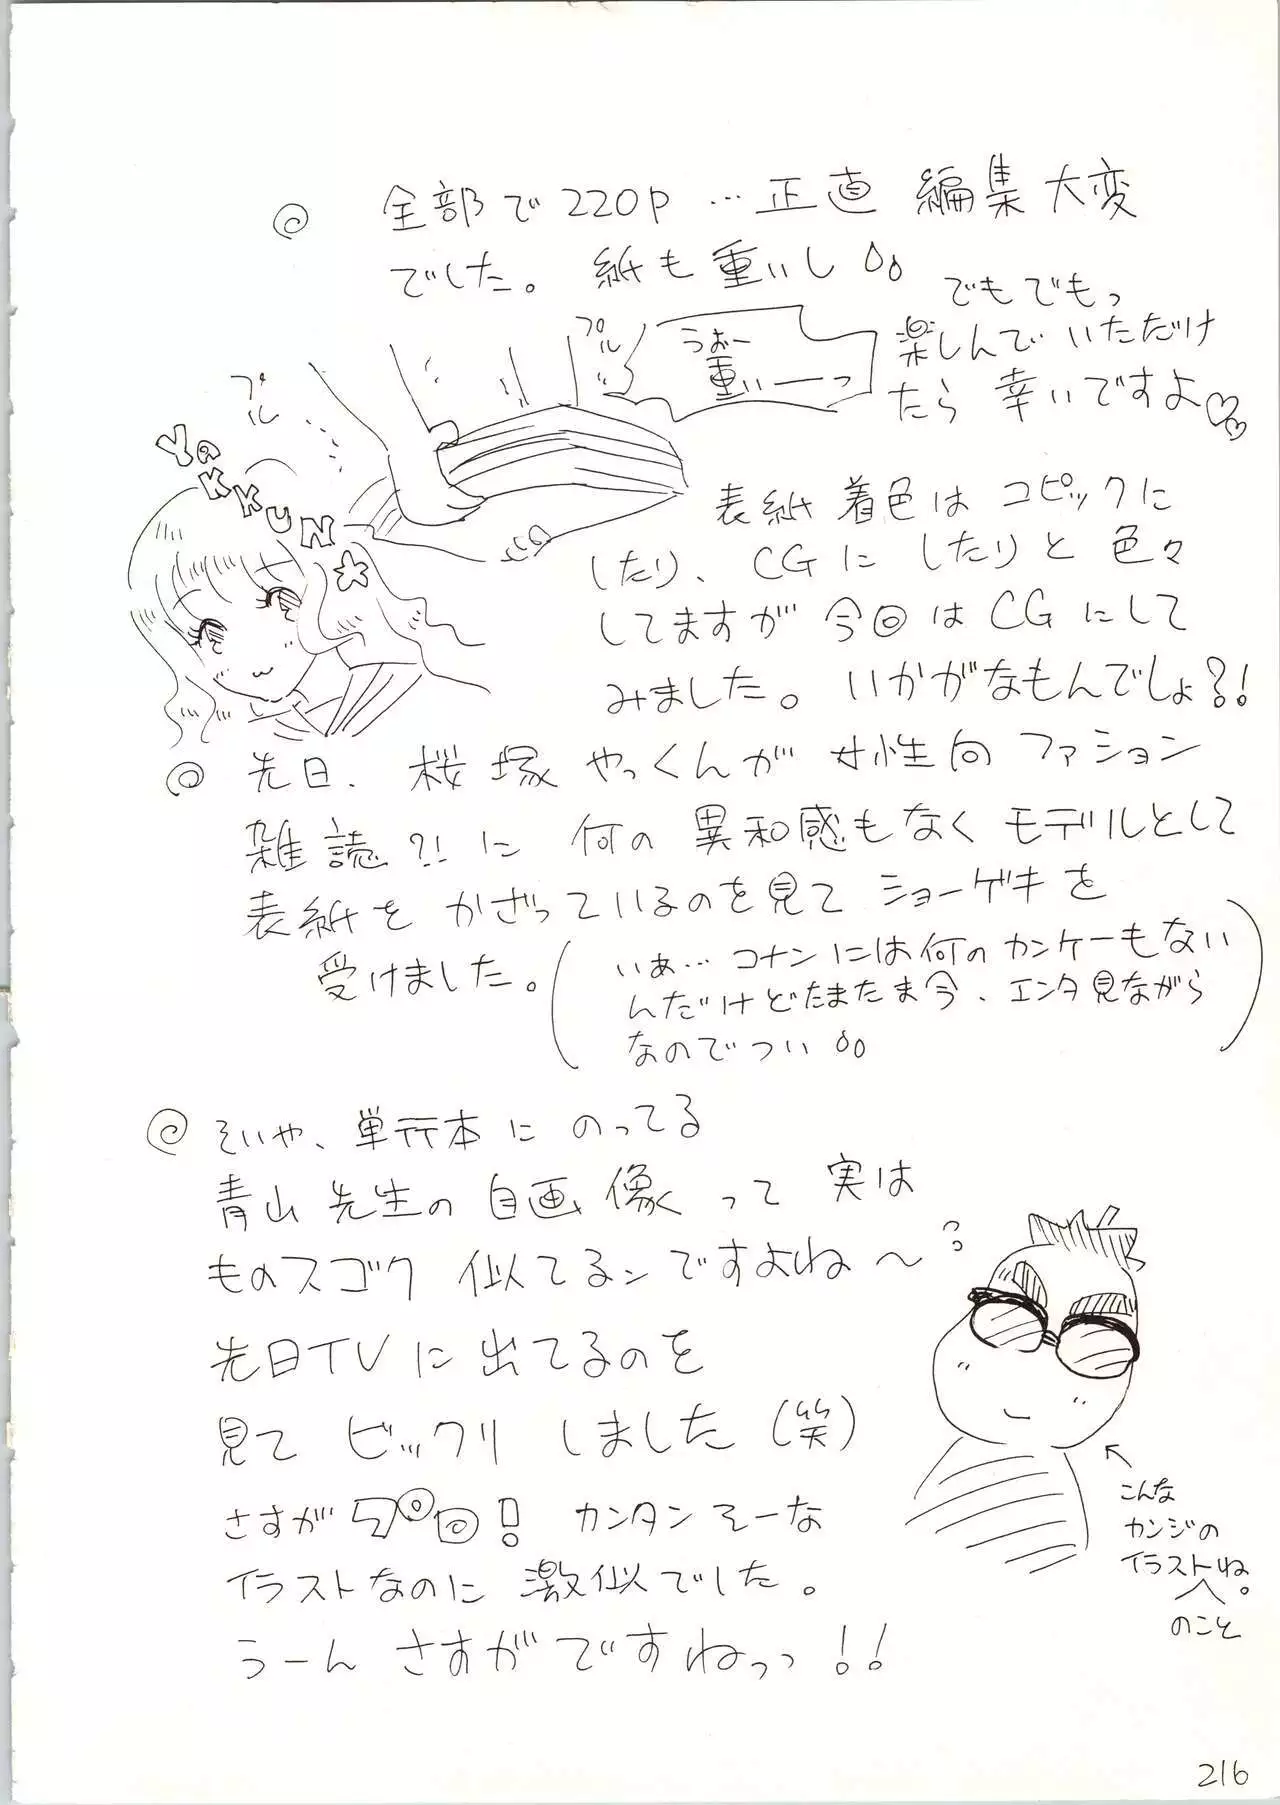 ◎ 全部で220P…正直 編集大変
でした。紙も重いし
でもでもっ
楽しんでいただけ
たら 幸いですよ♡♡
プル
うぉー
重いーっ
プル
YAKKUN☆
表紙着色はコピックに
したり、CGにしたりと色々
してますが今回はCGにして
みました。いかがなもんでしょ?!
◎ 先日、桜塚やっくんが女性向ファション
雑誌?!に何の異和感もなくモデルとして
表紙をかざっているのを見てショーゲキを
受けました。
(いぁ…コナンには何のカンケーもない
んだけどたまたま今、エンタ見ながら
なのでつい)
◎ そいや、単行本にのってる
青山先生の自画像って実は
ものスゴク似てるンですよね〜
先日TVに出てるのを
見てビックリしました(笑)
さすがプロ! カンタンそーな
イラストなのに激似でした。
うーんさすがですねっっ!!
こんな
カンジの
イラストね。
のこと
216